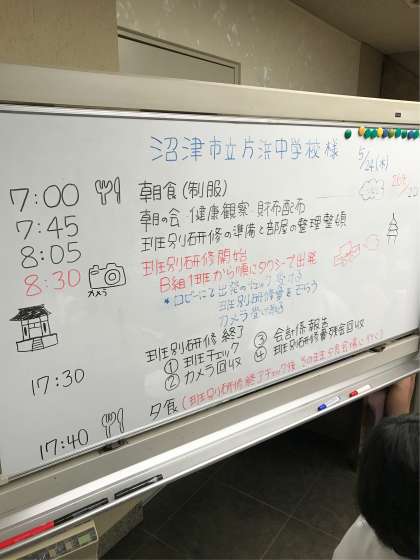 沼津市立片浜中学校 様
5/24(水)
7:00 朝食(制服)
7:45 朝の会 健康観察 財布配布
8:05 班別研修の準備と部屋の整理整頓
8:30 班別研修開始
カメラ
B組1班から順にタクシーで出発
*ロビーにて出発のチェック受ける
班別研修費をもらう
カメラ受けとる
17:30 班別研修終了
① 班長チェック
② カメラ回収
③ 会計係報告
④ 班別研修費残金回収
17:40 夕食(班別研修終了チェック後 そのまま夕食会場に行く)